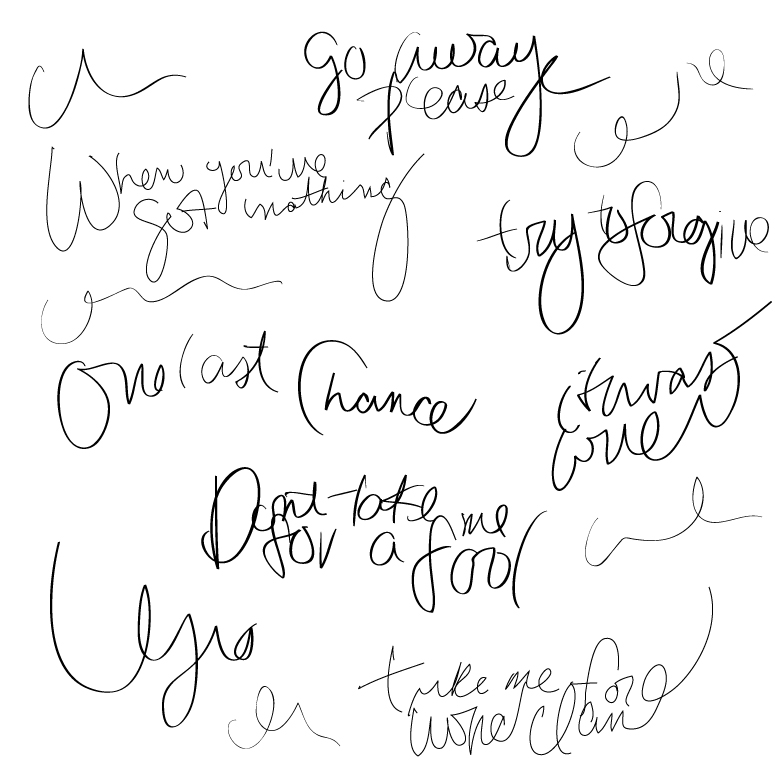 go away
please
When you've
got nothing
try to forgive
One last Chance
it was
love
Dont take
for a me
fool
take me for